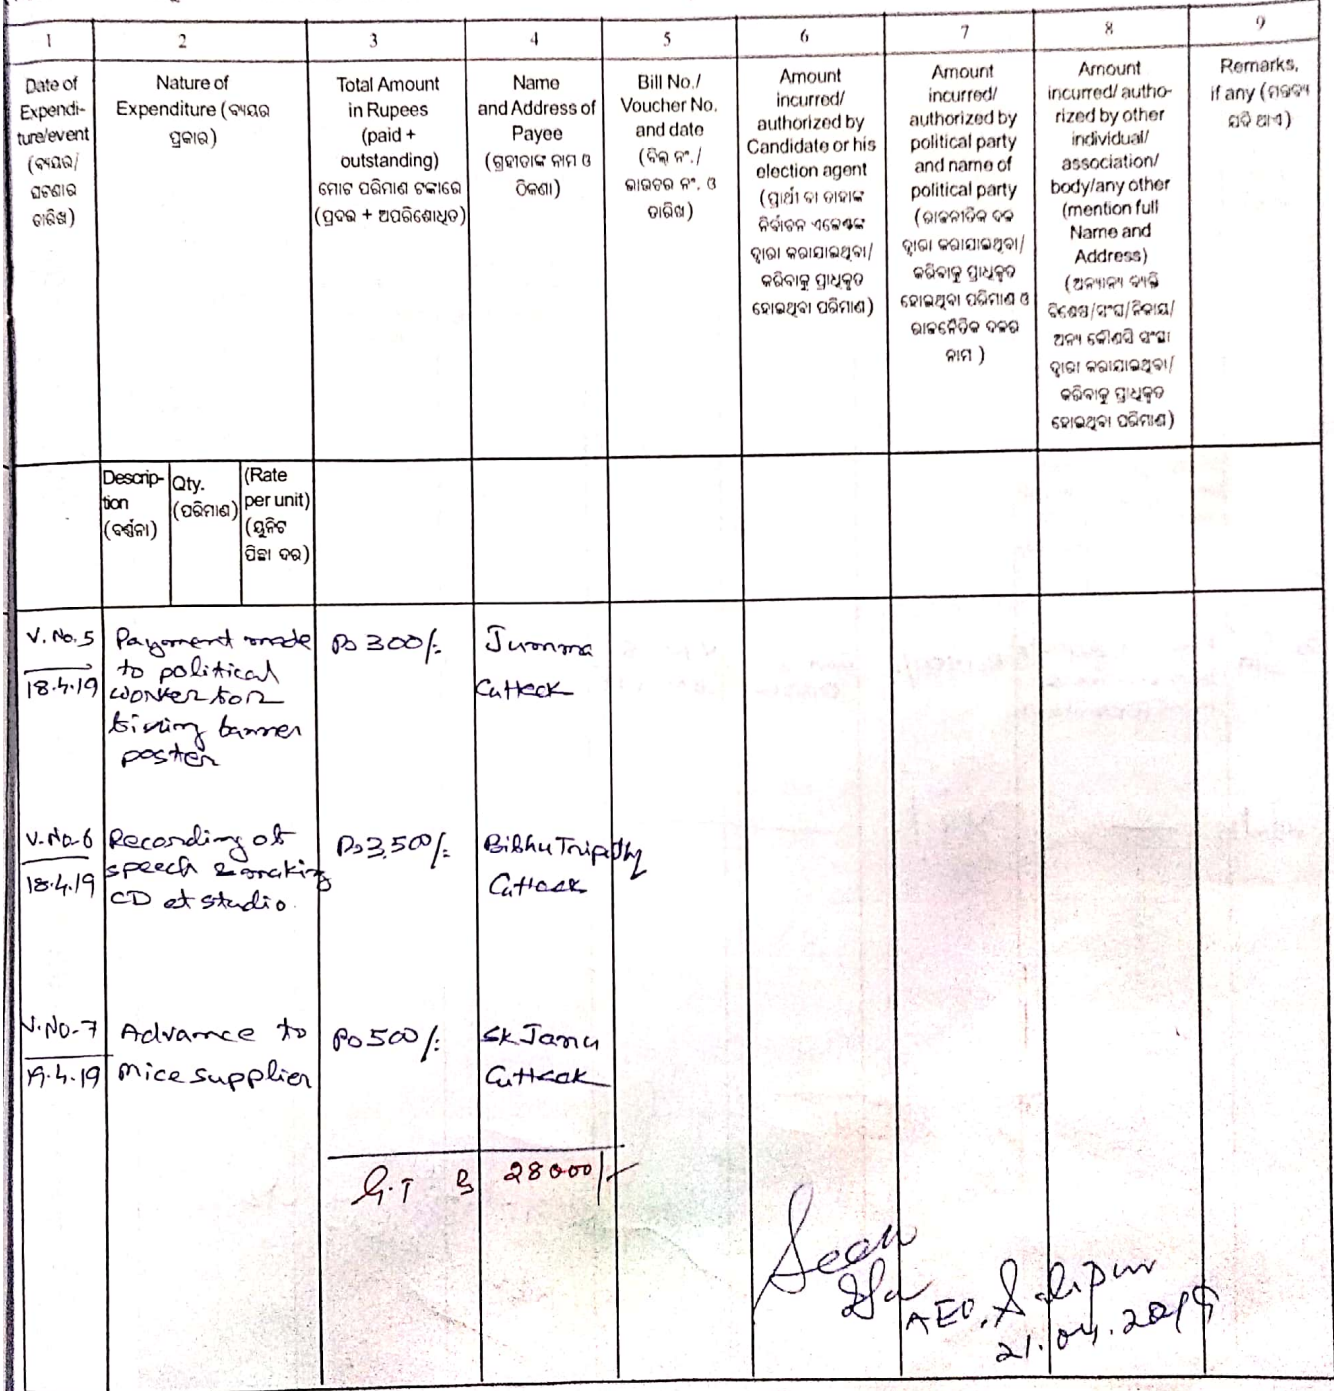 1 2 3 4 5 6 7 8 9
Date of
Expendi-
ture/event
(ବ୍ୟୟର/
ଘଟଣାର
ତାରିଖ)
Nature of
Expenditure (ବ୍ୟୟର
ପ୍ରକାର)
Total Amount
in Rupees
(paid +
outstanding)
ମୋଟ ପରିମାଣ ଟଙ୍କାରେ
(ପ୍ରଦତ୍ତ + ଅପରିଶୋଧିତ)
Name
and Address of
Payee
(ଗ୍ରହୀତାଙ୍କ ନାମ ଓ
ଠିକଣା)
Bill No./
Voucher No.
and date
(ବିଲ୍ ନଂ./
ଭାଉଚର ନଂ. ଓ
ତାରିଖ)
Amount
incurred/
authorized by
Candidate or his
election agent
(ପ୍ରାର୍ଥୀ ବା ତାହାଙ୍କ
ନିର୍ବାଚନ ଏଜେଣ୍ଟଙ୍କ
ଦ୍ୱାରା କରାଯାଇଥିବା/
କରିବାକୁ ପ୍ରାଧିକୃତ
ହୋଇଥିବା ପରିମାଣ)
Amount
incurred/
authorized by
political party
and name of
political party
(ରାଜନୀତିକ ଦଳ
ଦ୍ୱାରା କରାଯାଇଥିବା/
କରିବାକୁ ପ୍ରାଧିକୃତ
ହୋଇଥିବା ପରିମାଣ ଓ
ରାଜନୈତିକ ଦଳର
ନାମ )
Amount
incurred/ autho-
rized by other
individual/
association/
body/any other
(mention full
Name and
Address)
(ଅନ୍ୟାନ୍ୟ ବ୍ୟକ୍ତି
ବିଶେଷ/ସଂଘ/ନିକାୟ/
ଅନ୍ୟ କୌଣସି ସଂସ୍ଥା
ଦ୍ୱାରା କରାଯାଇଥିବା/
କରିବାକୁ ପ୍ରାଧିକୃତ
ହୋଇଥିବା ପରିମାଣ)
Remarks,
if any (ମନ୍ତବ୍ୟ
ଯଦି ଥାଏ)
Descrip-
tion
(ବର୍ଣ୍ଣନା)
Qty.
(ପରିମାଣ)
(Rate
per unit)
(ୟୁନିଟ
ପିଛା ଦର)
V. No. 5
18.4.19
Payment made
to political
worker for
tiving banner
poster
Rs 300/-
Jumma
Cuttack
V. No-6
18.4.19
Recording of
speech & making
CD at studio.
Rs 3,500/-
Bibhu Tripathy
Cuttack
V. No-7
19.4.19
Advance to
mice supplier
Rs 500/-
Sk Janu
Cuttack
G.T Rs 28000/-
Seen
AEO, Salipur
21.04.2019